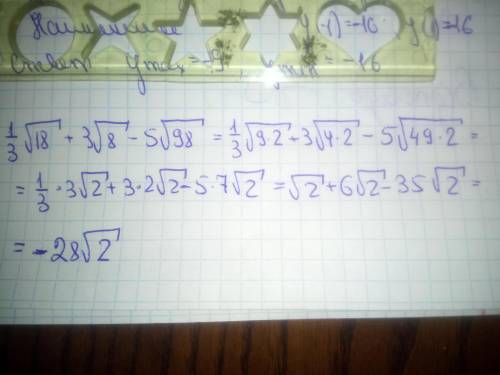 y(-1)=-16 y(1)=-16
Ответ ymax=-9 ymin = -16
1/3√18 + 3√8 - 5√98 = 1/3√9·2 + 3√4·2 - 5√49·2 =
= 1/3·3√2 + 3·2√2 - 5·7√2 = √2 + 6√2 - 35√2 =
= -28√2